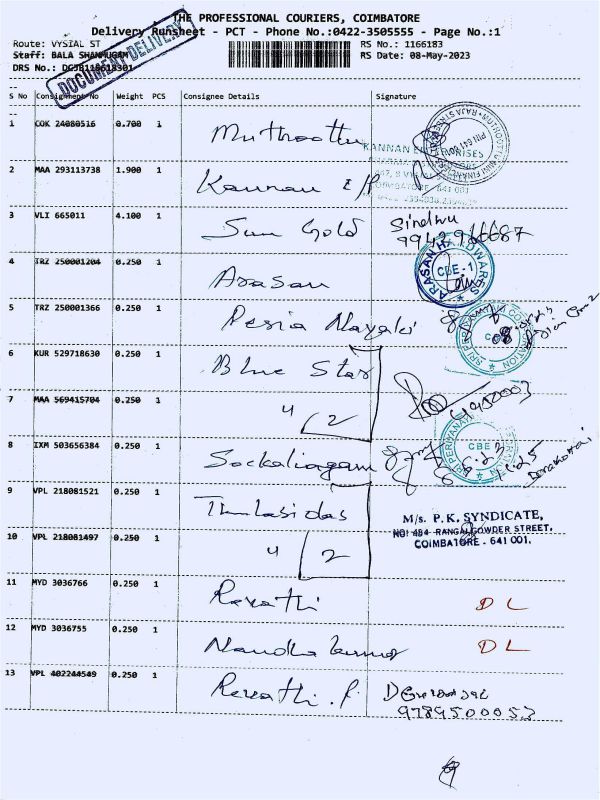 THE PROFESSIONAL COURIERS, COIMBATORE
Delivery Runsheet - PCT - Phone No.:0422-3505555 - Page No.:1
Route: VYSIAL ST RS No.: 1166183
Staff: BALA SHANMUGAM RS Date: 08-May-2023
DRS No.:
DOCUMENT DELIVERY
S No Consignment No Weight PCS Consignee Details Signature
1 COK 24080516 0.700 1 Muthoottu
KANNAN ENTERPRISES
2 MAA 293113738 1.900 1 Kannan E/P
COIMBATORE - 641 001
3 VLI 665011 4.100 1 Sun Gold Sindhu
4 TRZ 250001204 0.250 1 Arasan
ARASAN HARDWARES
CBE-1
5 TRZ 250001366 0.250 1 Peria Nayaki
6 KUR 529718630 0.250 1 Blue Star
7 MAA 569415704 0.250 1 " 2
8 IXM 503656384 0.250 1 Sockalingam
9 VPL 218081521 0.250 1 Thulasidas
M/s. P.K. SYNDICATE,
NO: 484 RANGAI GOWDER STREET,
COIMBATORE - 641 001.
10 VPL 218081497 0.250 1 " 2
11 MYD 3036766 0.250 1 Revathi D L
12 MYD 3036755 0.250 1 Nandha kumar D L
13 VPL 402244549 0.250 1 Revathi . P
9789500053